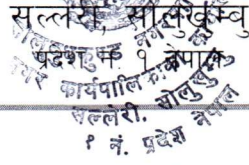 सल्लेरी, सोलुखुम्बु
प्रदेश नं. १ नेपाल
नगर कार्यपालिका
सल्लेरी, सोलुखुम्बु
१ नं. प्रदेश नेपाल